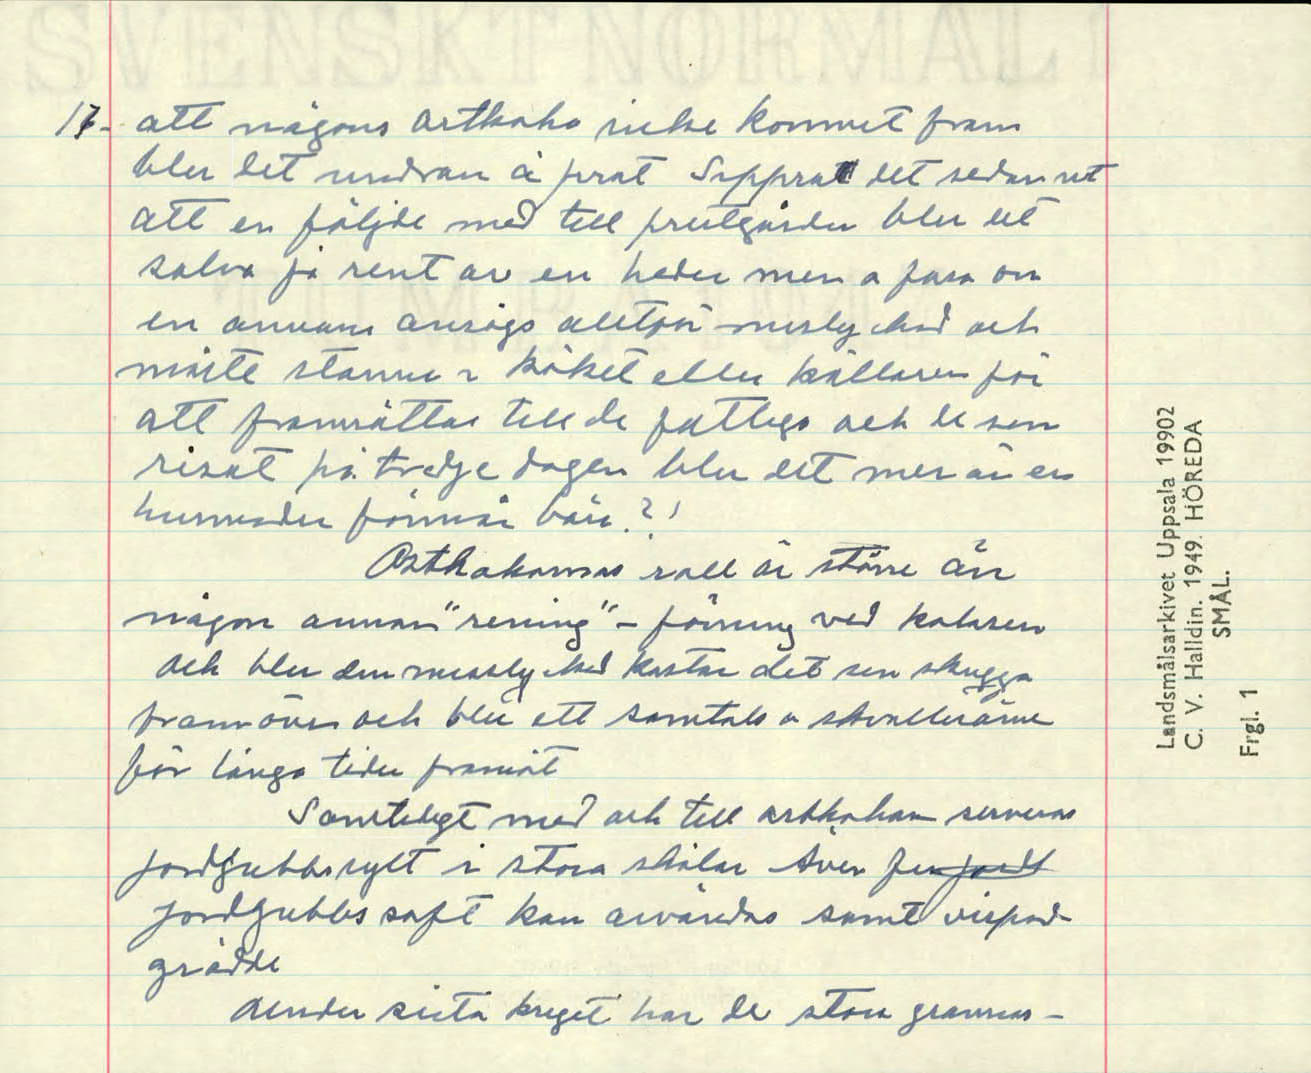 17- att någons ostkaka icke kommit fram
blir det undran å prat Sipprat det sedan ut
att en följde med till prestgården blir det
salva ja rent av en heder men a fara om
en annans ansågs alltför misslyckad och
måste stanna i köket eller källaren för
att framsättas till de fattiga och de som
resat på tredje dagen blir det mer än en
husmoder förmår bära?!
Ostkakornas roll är större än
någon annan "rening" - förning ved kalasen
och blir den misslyckad kastar det sen skugga
framöver och blir ett samtals o skvallerämne
för långa tider framåt
Samtidigt med och till ostkakan serveras
jordgubbssylt i stora skålar Även fin
jordgubbssaft kan användas samt vispad
grädde
Under sista kriget har de stora
Landsmålsarkivet Uppsala 19902
C. V. Halldin. 1949. HÖREDA
SMÅL.
Frgl. 1